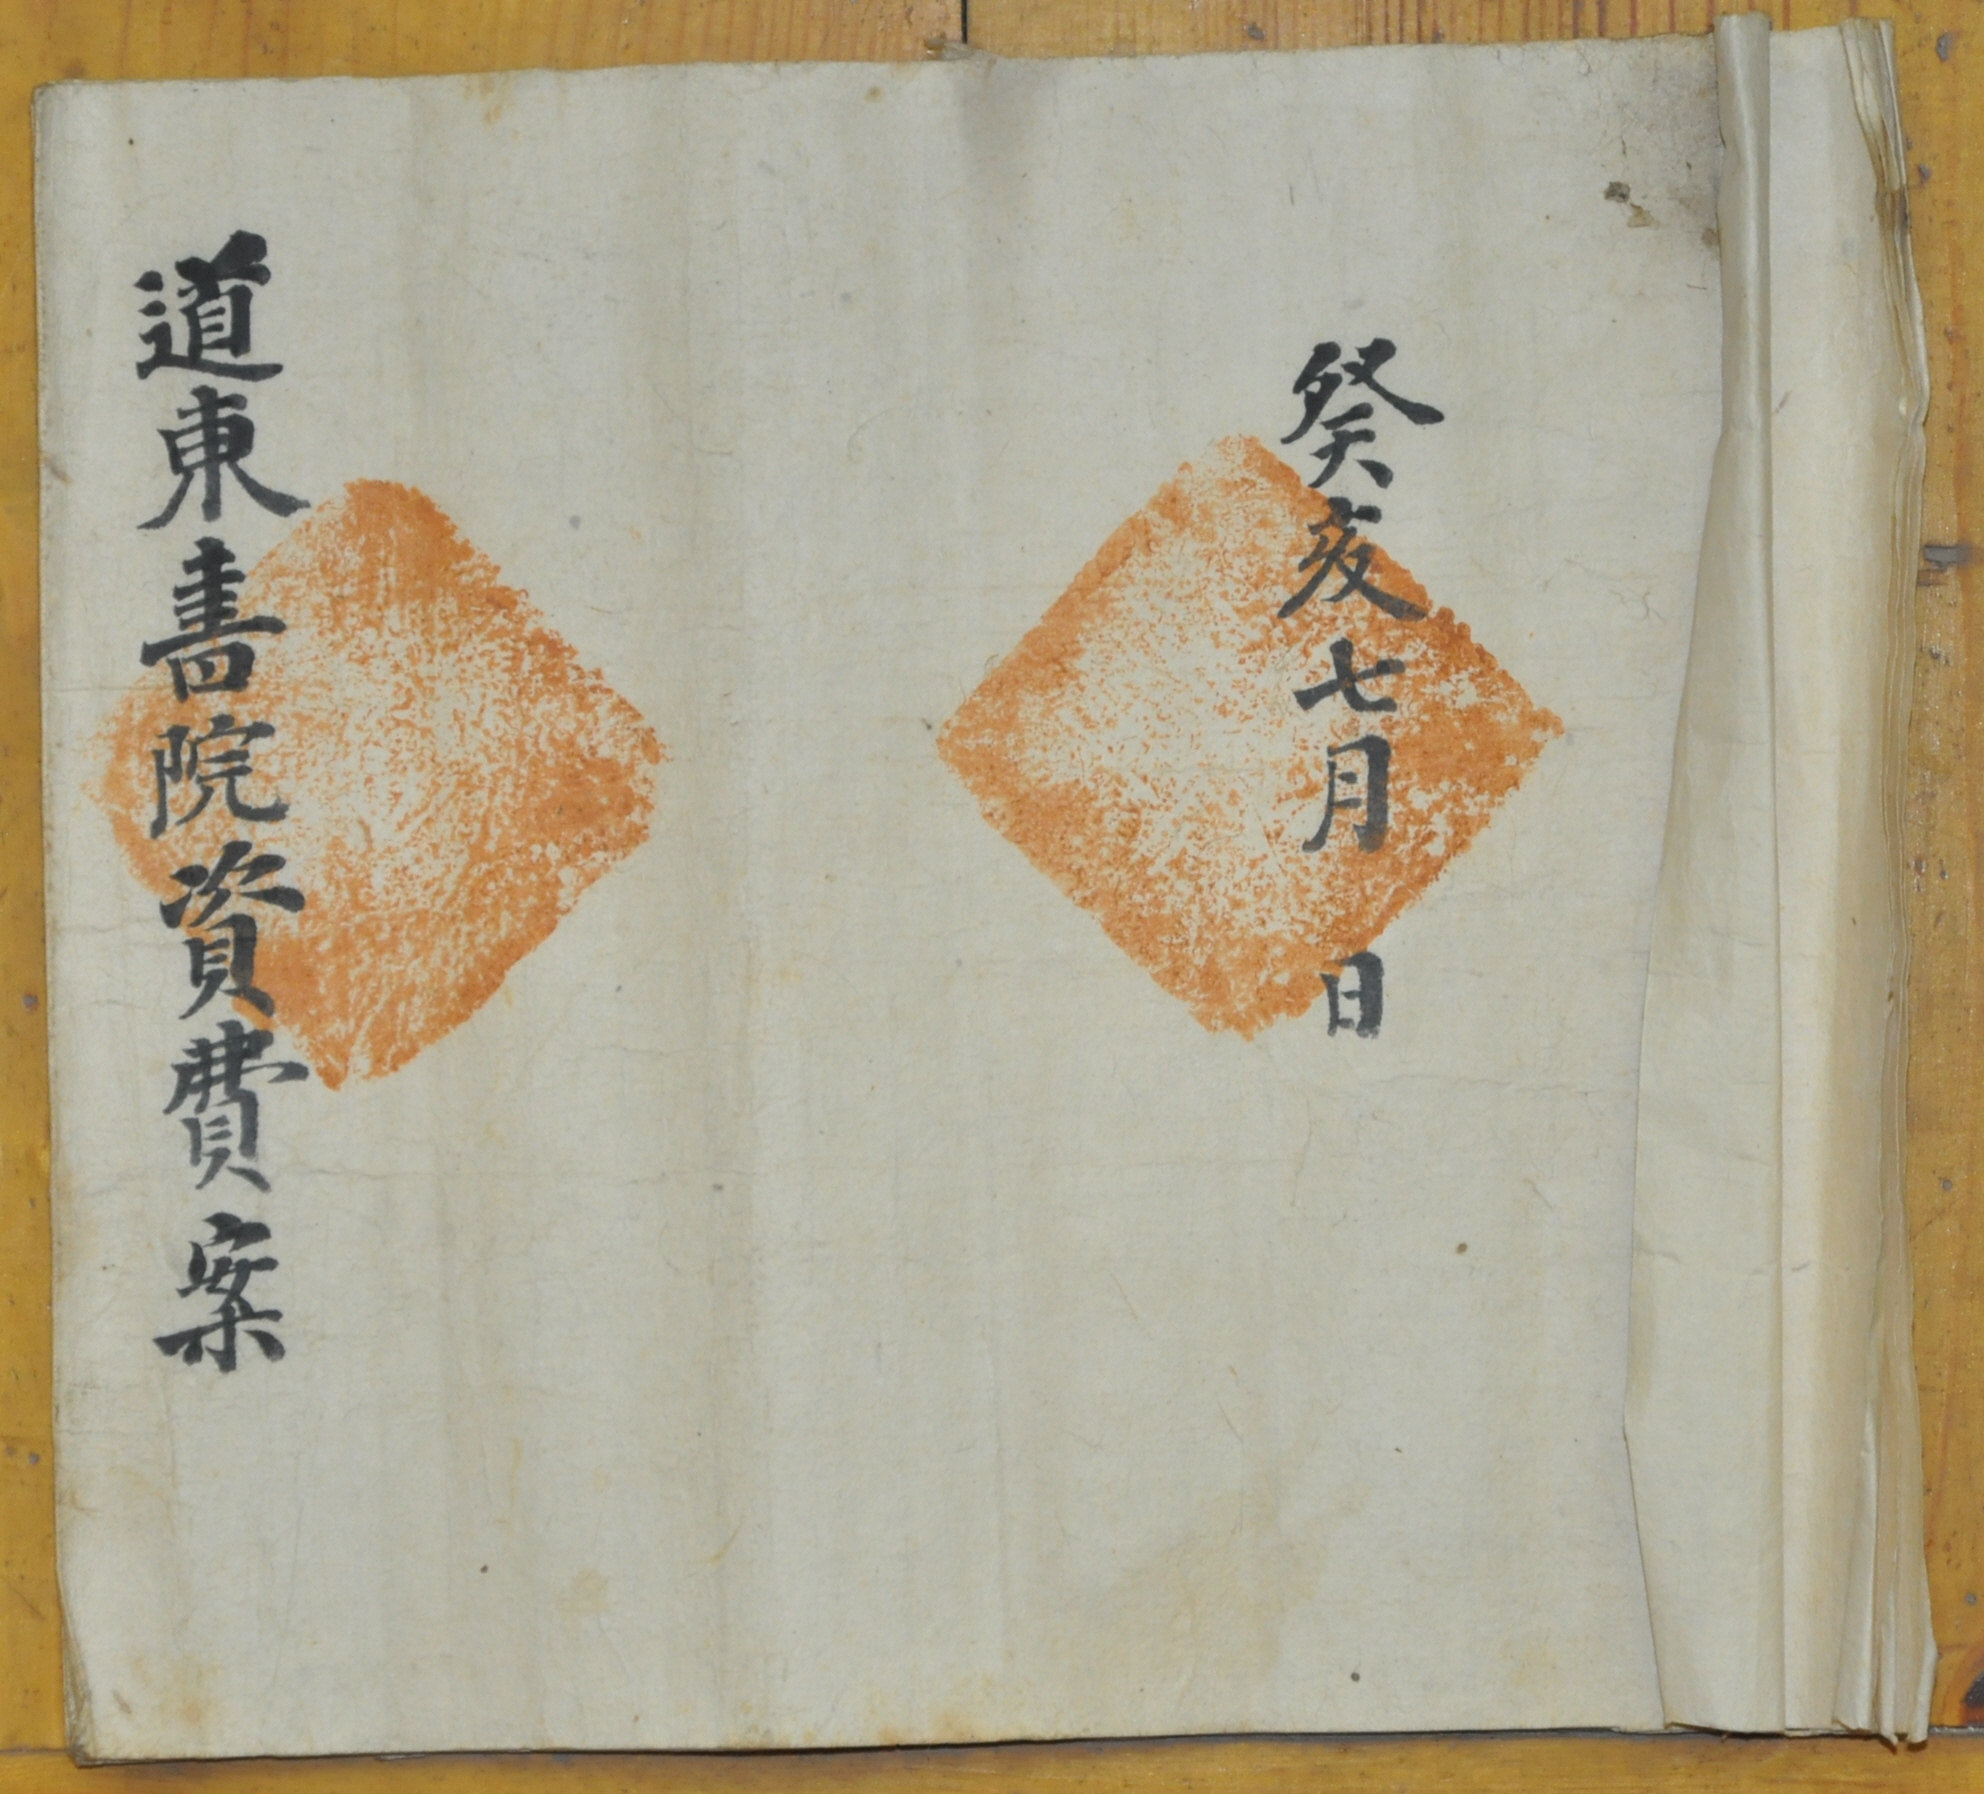 癸亥七月 日
道東書院資費案